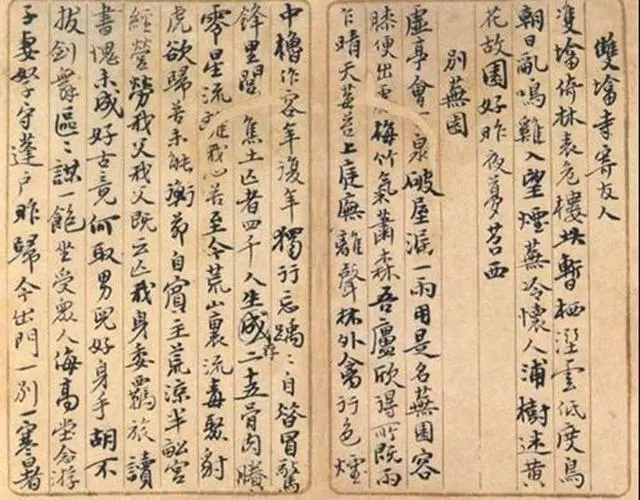 雙墖寺寄友人
雙墖倚林表危樓堪暫栖溼雲低度鳥
朝日亂鳴雞入望煙蕪冷懷人浦樹迷黃
花故園好昨夜夢苕西
別蕪園
虛亭會一泉破屋漏一雨用是名蕪園容
膝便出處梅竹氣蕭森吾廬欣得所既雨
乍晴天莓苔上庭廡離聲林外禽行色煙
中櫓作客年復年獨行忘踽〻自咎冒驚
鋒里閭焦土亡者四千人生成存二十五骨肉賸
零星流離我心苦至今荒山裏流毒聚豺
虎欲歸苦未能衡茆自賓主荒涼半畝宮
經營勞我父我父既云亡我身委羈旅讀
書愧未成好古竟何取男兒好身手胡不
拔劍舞區〻謀飽坐受眾人侮高堂念游
子妻孥守蓬戶昨歸今出門一別一寒暑